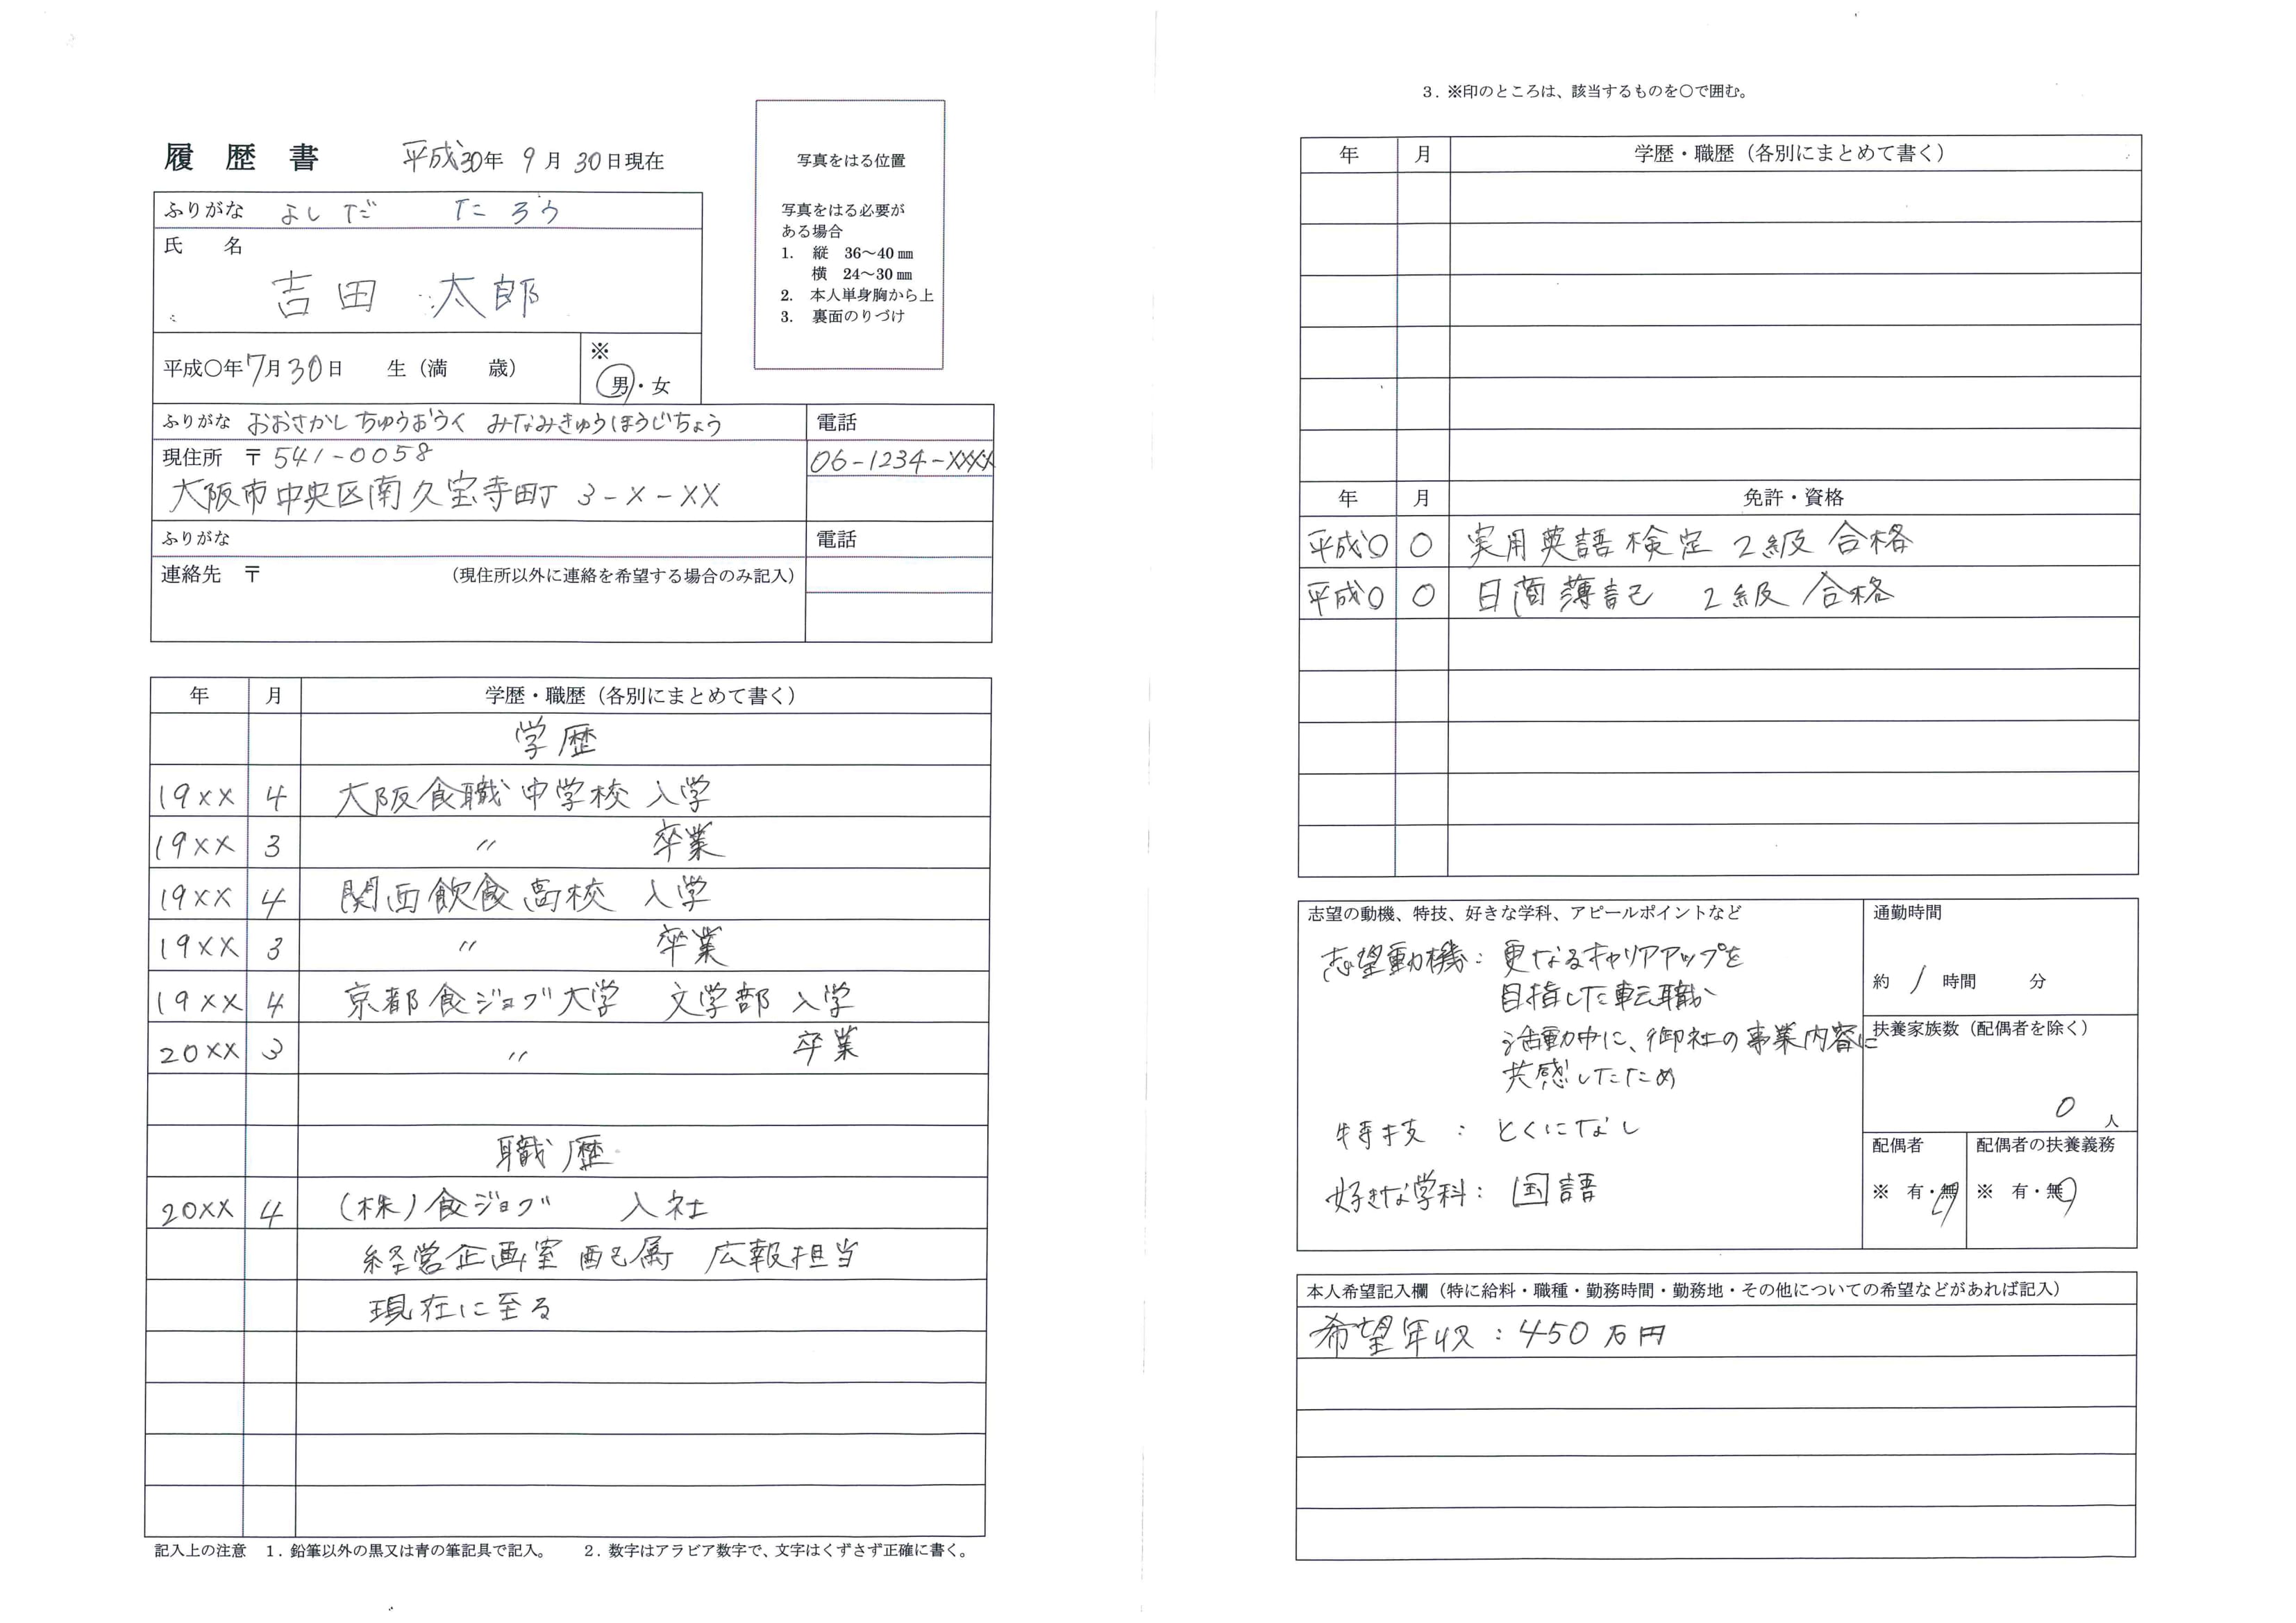 履歴書 平成30年 9月 30日現在
ふりがな よしだ たろう
氏 名
吉田 太郎
平成〇年7月30日 生（満 歳）
※
男・女
写真をはる位置
写真をはる必要が
ある場合
1. 縦 36～40㎜
横 24～30㎜
2. 本人単身胸から上
3. 裏面のりづけ
ふりがな おおさかし ちゅうおうく みなみきゅうほうじちょう
電話
現住所 〒541-0058
06-1234-XXXX
大阪市中央区南久宝寺町 3-X-XX
ふりがな
電話
連絡先 〒 （現住所以外に連絡を希望する場合のみ記入）
年 月 学歴・職歴（各別にまとめて書く）
学歴
19XX 4 大阪食職中学校 入学
19XX 3 〃 卒業
19XX 4 関西飲食高校 入学
19XX 3 〃 卒業
19XX 4 京都食ジョブ大学 文学部 入学
20XX 3 〃 卒業
職歴
20XX 4 (株)食ジョブ 入社
経営企画室配属 広報担当
現在に至る
記入上の注意 1．鉛筆以外の黒又は青の筆記具で記入。 2．数字はアラビア数字で、文字はくずさず正確に書く。
3．※印のところは、該当するものを〇で囲む。
年 月 学歴・職歴（各別にまとめて書く）
年 月 免許・資格
平成〇 〇 実用英語検定 2級 合格
平成〇 〇 日商薄記 2級 合格
志望の動機、特技、好きな学科、アピールポイントなど
志望動機：更なるキャリアアップを
目指した転職
活動中に、御社の事業内容に
共感したため
特技：とくになし
好きな学科：国語
通勤時間
約 1 時間 分
扶養家族数（配偶者を除く）
0 人
配偶者
※ 有・無
配偶者の扶養義務
※ 有・無
本人希望記入欄（特に給料・職種・勤務時間・勤務地・その他についての希望などがあれば記入）
希望年収：450万円